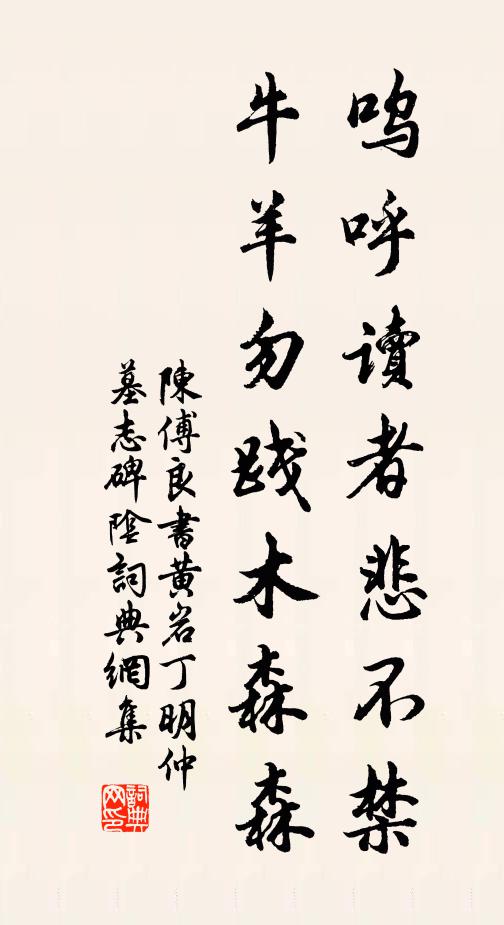 嗚呼讀者悲不禁
牛羊勿践木森森
陳傅良書黃岩丁明仲
墓志碑陰詞典網集
詞典网印